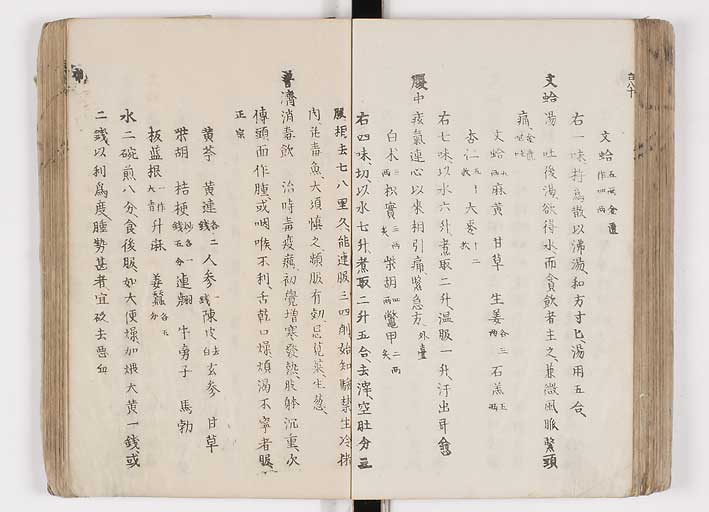 文蛤五両 金匱作四両
右一味杵為散以沸湯和方寸匕湯用五合
文蛤湯 吐後渇欲得水而貪飲者主之兼微風脈緊頭
痛
文蛤 麻黄 甘草 生姜各三両 石羔五両
杏仁五十 大棗十二
右七味以水六升煮取二升温服一升汗出即愈
腹中痰氣連心以来相引痛緊急方 外臺
白朮三両 枳實三両 柴胡四両 鼈甲二両
右四味切以水七升煮取二升五合去滓空肚分三
服相去七八里久能連服三四劑始知驗禁生冷
肉蒜毒魚大須慎之頻服有効忌莧菜生葱
普濟消毒飲 治時毒疫癘初覺増寒發熱肢体沉重次
傳頭面作腫或咽喉不利舌乾口燥煩渇不寧者服
正宗
黄芩 黄連各二錢 人参一錢 陳皮去白 玄参 甘草
柴胡 桔梗 連翹 牛蒡子 馬勃
板藍根一作大青 升麻 姜蚕各五分
水二碗煎八分食後服如大便燥加煨大黄一錢或
二錢以利為度腫勢甚者宜砭去悪血